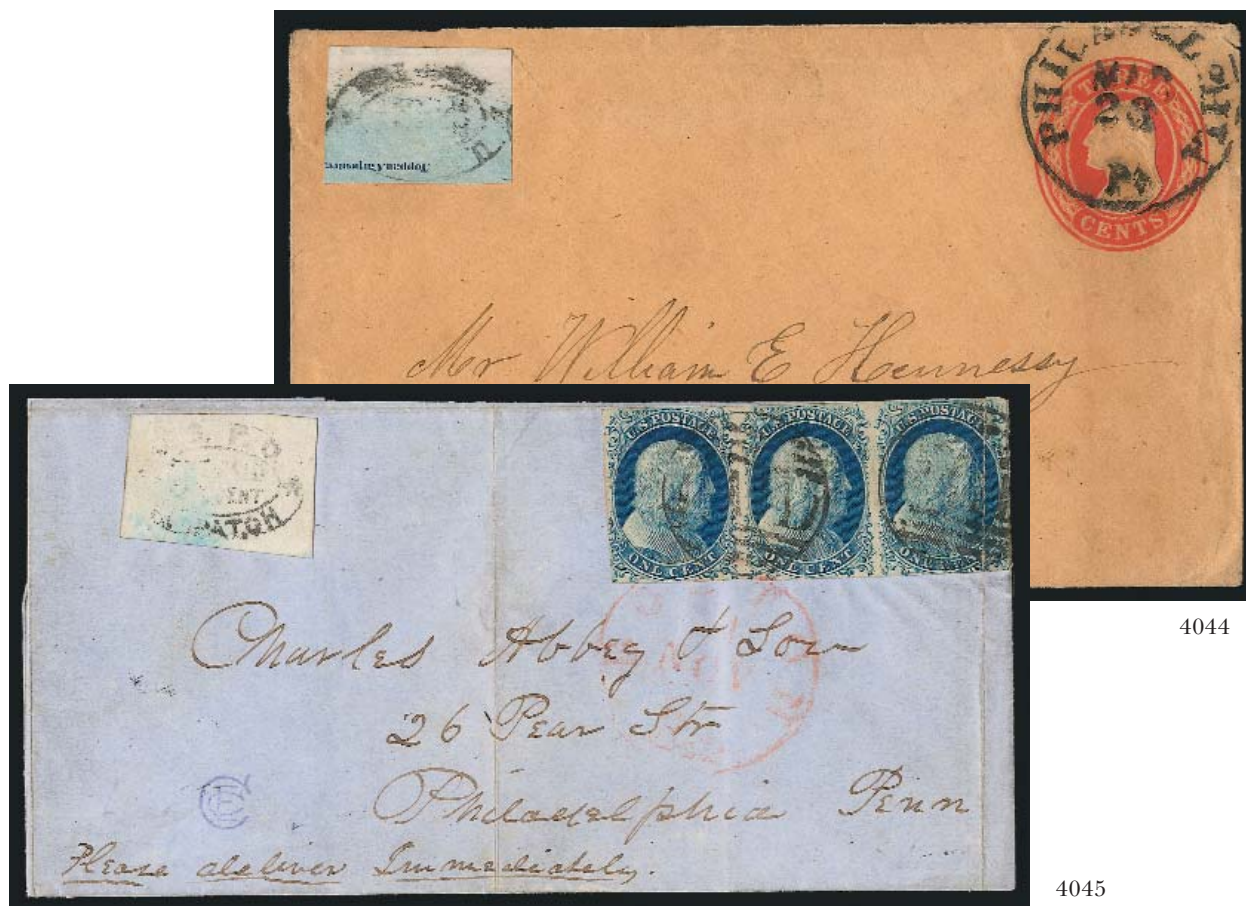 PHILADELPHIA
23
Pa
THREE
CENTS
Toppan, Carpenter,
Mr William E Hennessy
4044
U.S. P.O.
CENT
DESPATCH
U.S. POSTAGE
ONE CENT
U.S. POSTAGE
ONE CENT
U.S. POSTAGE
ONE CENT
NOV
Charles Abbey & Son
26 Pear Str
Philadelphia Penn
Please deliver Immediately.
4045